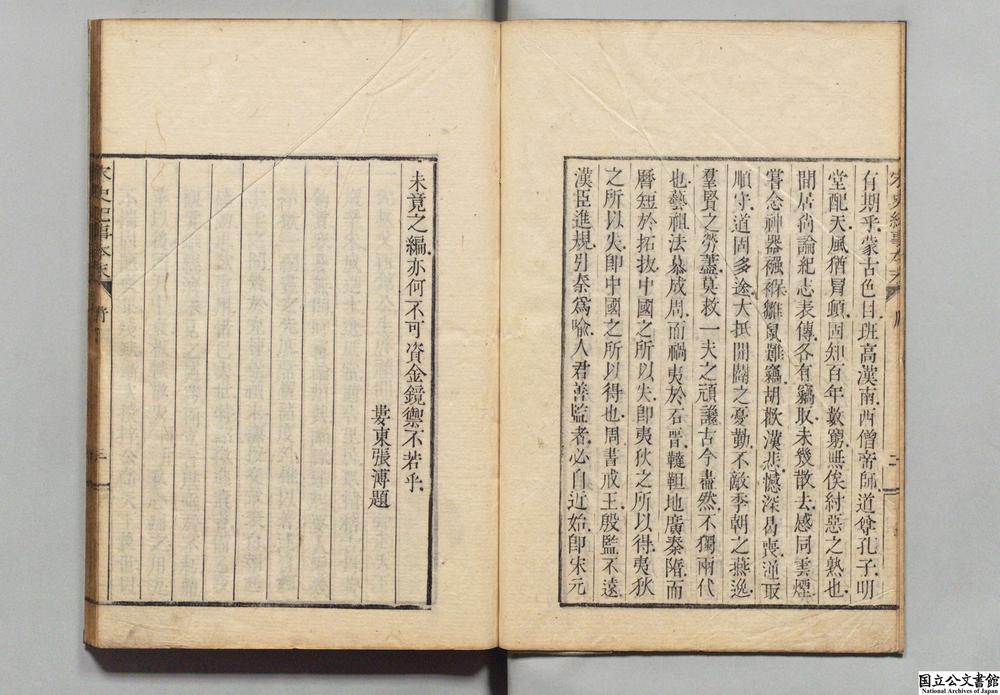 有期乎蒙古色目班高漢南西僧帝師道尊孔子明
堂配天風猶冒頓固知百年數窮無俟紂惡之熟也
閒居尚論紀志表傳各有竊取未幾散去感同雲煙
嘗念神器襁褓雛鼠難竊胡歡漢悲憾深曷喪逆取
順守道固多途大抵開闢之憂勤不敵季朝之燕逸
羣賢之勞藎莫救一夫之頑讒古今盡然不獨兩代
也藝祖法慕成周而禍夷於石晉韃靼地廣秦隋而
曆短於拓拔中國之所以失卽夷狄之所以得夷狄
之所以失卽中國之所以得也周書戒王殷監不遠
漢臣進規引秦爲喻人君善監者必自近始卽宋元
未竟之編亦何不可資金鏡禦不若乎
婁東張溥題
宋史紀事本末
國立公文書館
National Archives of Japan